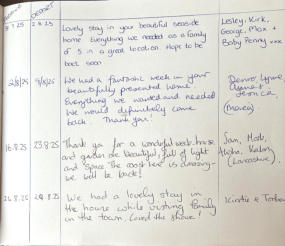 DEPART
Lovely stay in your beautiful seaside
home. Everything we needed as a family
of 5 in a great location. Hope to be
back soon
Lesley, Kirk,
George, Max +
Baby Penny xxx
2/8/25 9/8/25 We had a fantastic week in your
beautifully presented home.
Everything we wanted and needed
We would definitely come
back. Thank you!
16.8.25 23.8.25 Thank you for a wonderful week. house
and garden are beautiful, full of light
and space. The coast here is amazing-
we will be back!
Sam, Matt,
(Lancashire).
24.8.25 We had a lovely stay in
the house while visiting family
in the town. Loved the
Kirstie &